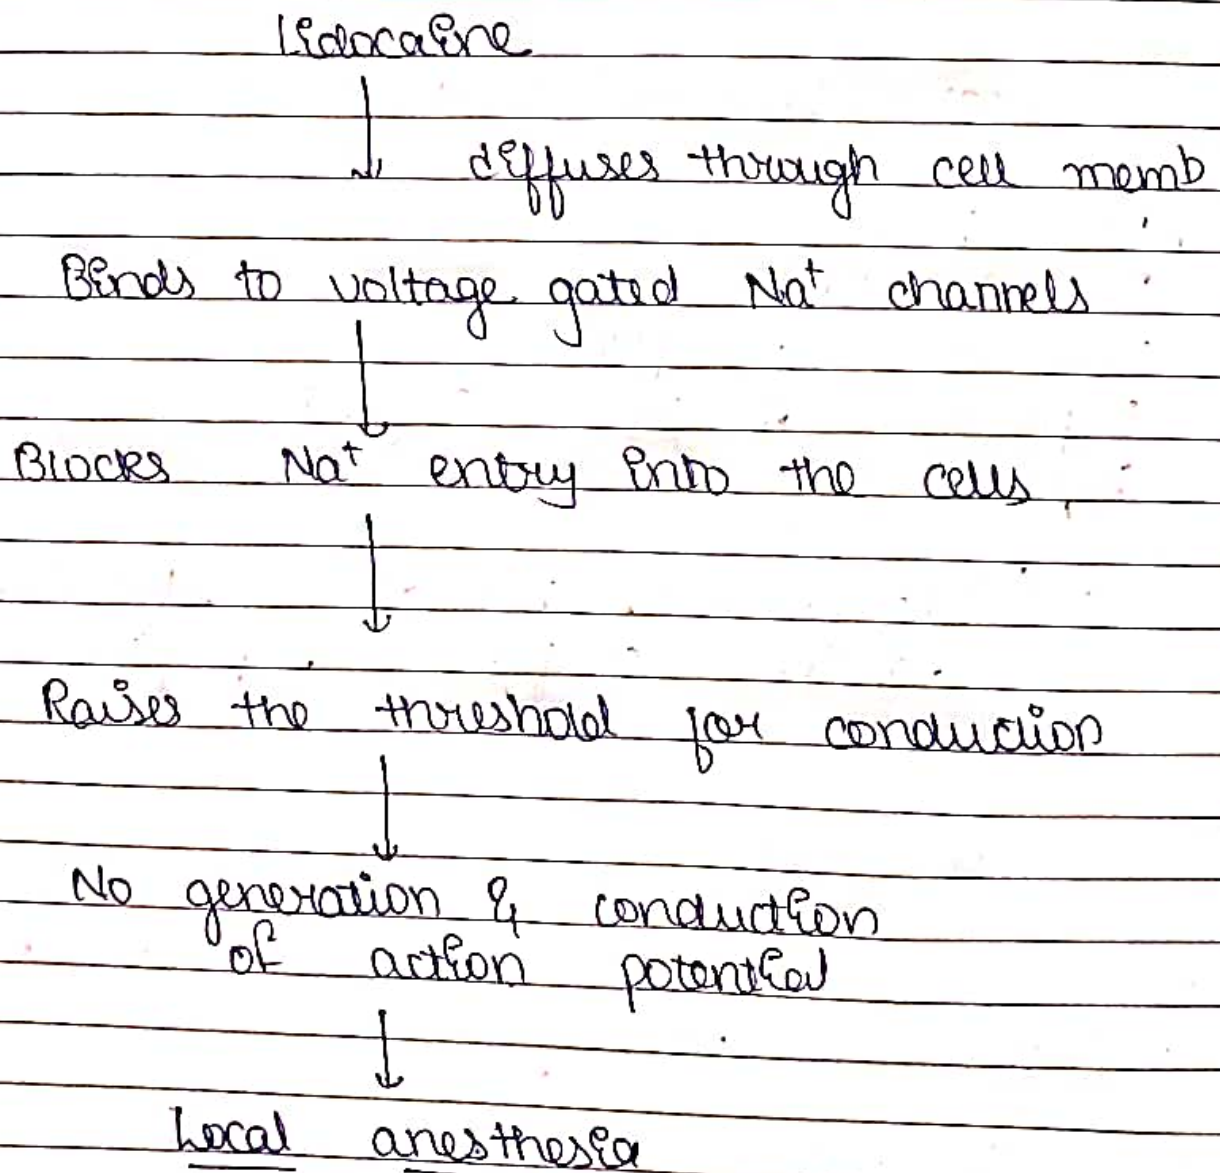 Lidocaine
diffuses through cell memb
Binds to voltage gated Na⁺ channels
Blocks Na⁺ entry into the cells
Raises the threshold for conduction
No generation & conduction
of action potential
Local anesthesia